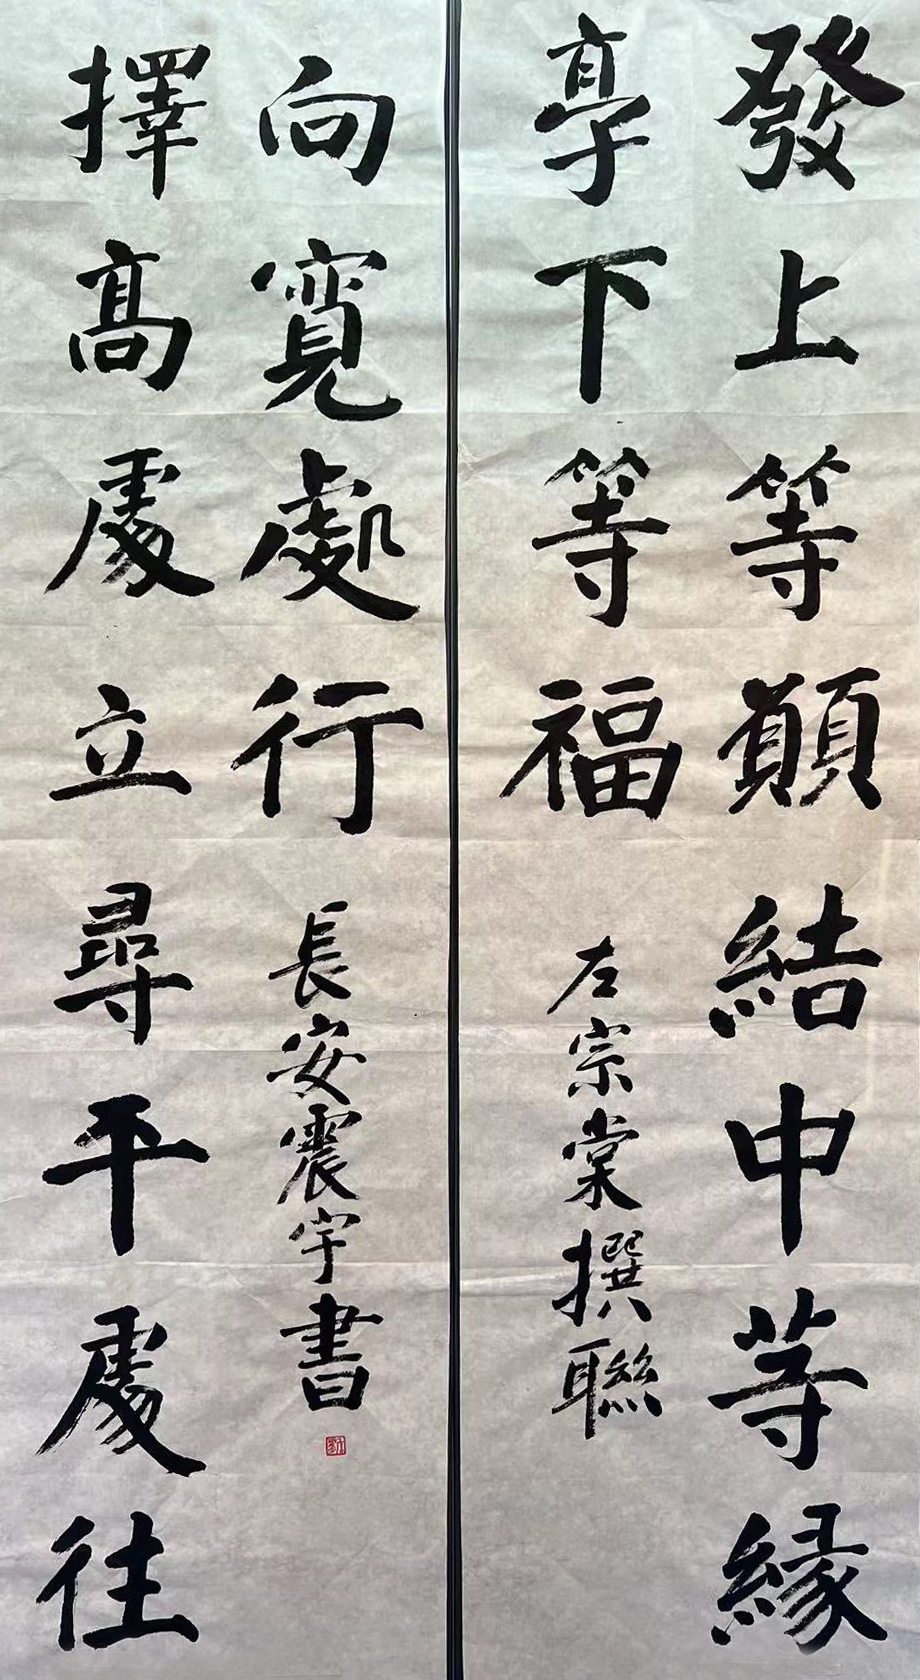 發上等願結中等緣
享下等福
左宗棠撰聯
擇高處立尋平處往
向寬處行
長安震宇書